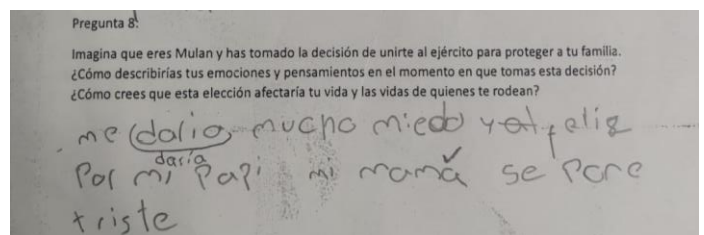 Pregunta 8:
Imagina que eres Mulan y has tomado la decisión de unirte al ejército para proteger a tu familia.
¿Cómo describirías tus emociones y pensamientos en el momento en que tomas esta decisión?
¿Cómo crees que esta elección afectaría tu vida y las vidas de quienes te rodean?
me dolio mucho miedo y feliz
daría
Por mi Papi mi mamá se pone
triste